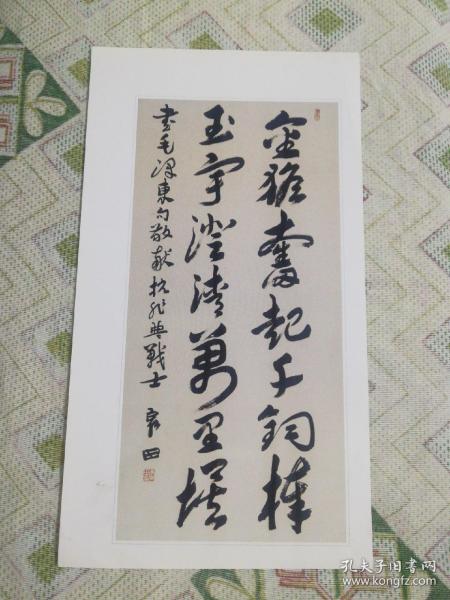 金猴奮起千鈞棒
玉宇澄清萬里埃
書毛澤東句敬獻抗非典戰士
孔夫子旧书网
www.kongfz.com